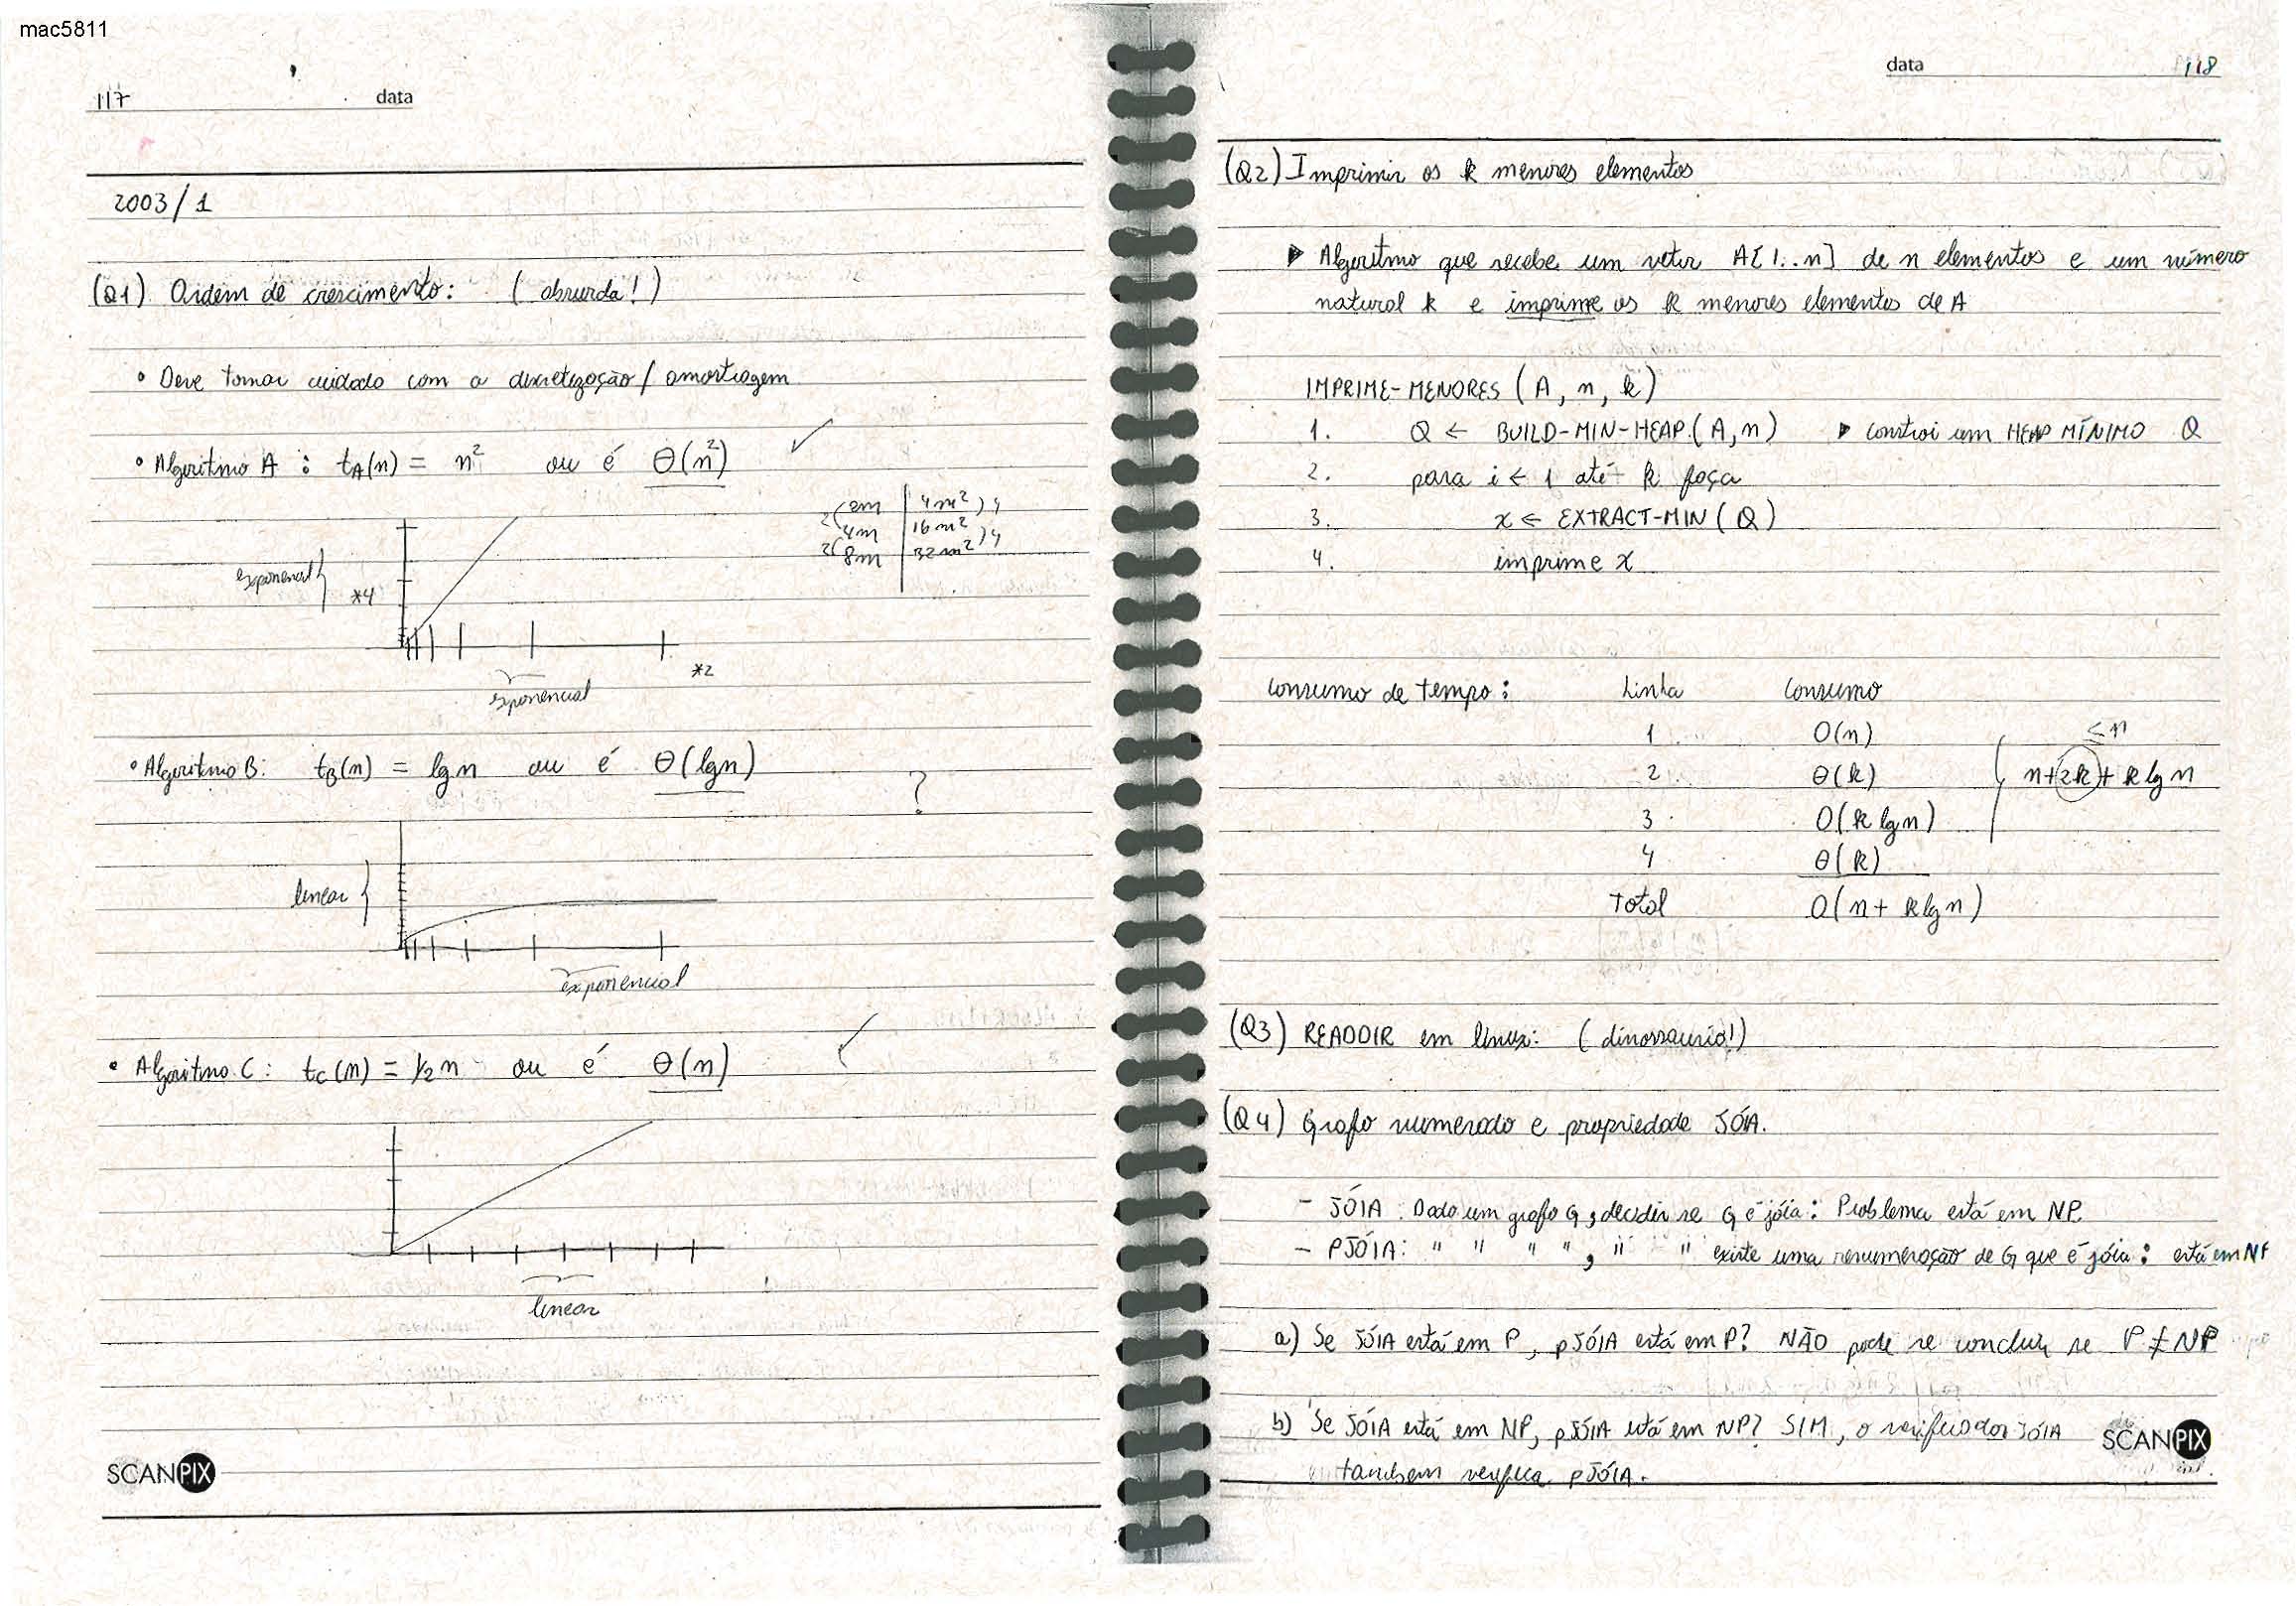 mac5811
117 data
2003/1
(Q1) Ordem de crescimento: (absurda!)
• Deve tomar cuidado com a discretização/amostragem
• Algoritmo A: tA(n) = n² ou é Θ(n²) ✓
2m | 4m²
2( 4m | 16m² )4
2( 8m | 32m² )4
exponencial
*4
*2
exponencial
• Algoritmo B: tB(n) = lgn ou é Θ(lgn) ?
linear
exponencial
• Algoritmo C: tC(n) = 1/2 n ou é Θ(n) ✓
linear
SCANPIX
data 118
(Q2) Imprimir os k menores elementos
▶ Algoritmo que recebe um vetor A[1..n] de n elementos e um número
natural k e imprime os k menores elementos de A
IMPRIME-MENORES (A, n, k)
1. Q ← BUILD-MIN-HEAP (A, n) ▶ constroi um HEAP MÍNIMO Q
2. para i ← 1 até k faça
3. x ← EXTRACT-MIN (Q)
4. imprime x
Consumo de tempo: Linha Consumo
1 O(n) ≤n
2 Θ(k) n+2k+ k lg n
3 O(k lg n)
4 Θ(k)
Total O(n+ k lg n)
(Q3) READDIR em linux: (dinossaurio!)
(Q4) Grafo numerado e propriedade JÓIA.
- JÓIA: Dado um grafo G, decidir se G é jóia: Problema está em NP.
- PJÓIA: " " " ", " " existe uma renumeração de G que é jóia: está em NP
a) Se JÓIA está em P, pJÓIA está em P? NÃO pode se concluir se P ≠ NP
b) Se JÓIA está em NP, pJÓIA está em NP? SIM, o verificador JÓIA
tambem verifica pJÓIA.
SCANPIX